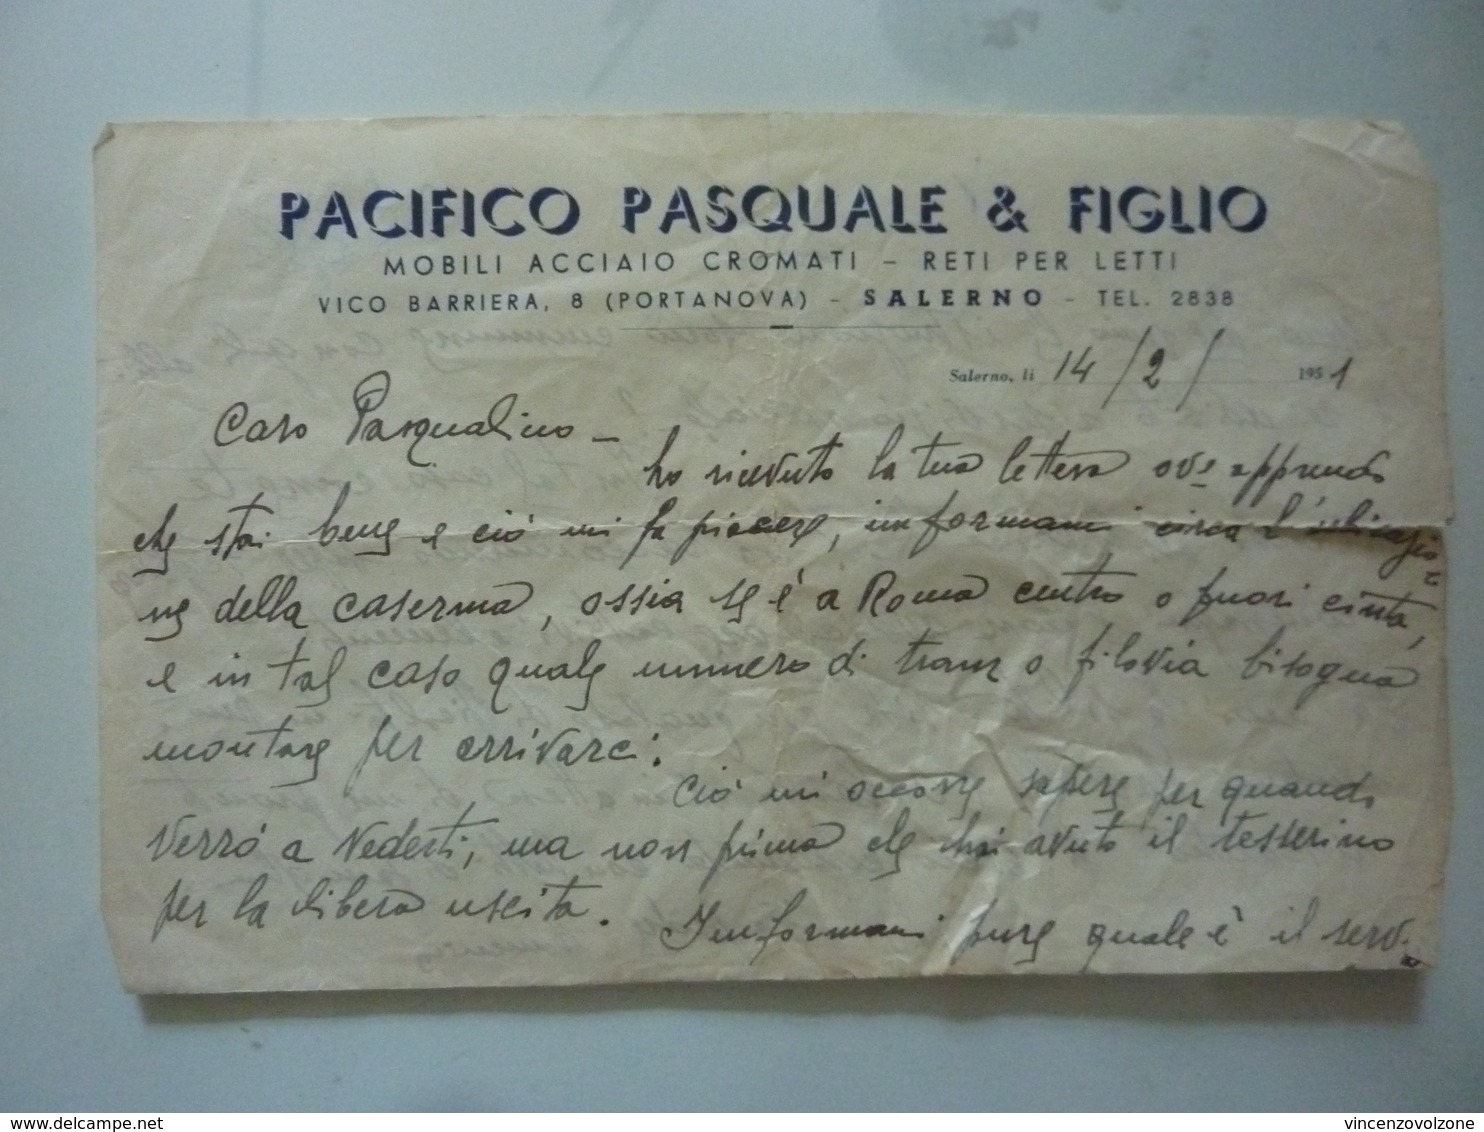 PACIFICO PASQUALE & FIGLIO
MOBILI ACCIAIO CROMATI – RETI PER LETTI
VICO BARRIERA, 8 (PORTANOVA) - SALERNO - TEL. 2838
Salerno, li 14/2/ 1951
Caro Pasqualino –
ho ricevuto la tua lettera ove apprendo
che stai bene e ciò mi fa piacere, informami circa l'ubicazio
ne della caserma, ossia se è a Roma centro o fuori cinta,
e in tal caso quale numero di tram o filovia bisogna
montare per arrivarci.
Ciò mi occorre sapere per quando
verrò a vederti, ma non prima che hai avuto il tesserino
per la libera uscita.
Informami pure quale è il servi
delcampe.net
vincenzovolzone